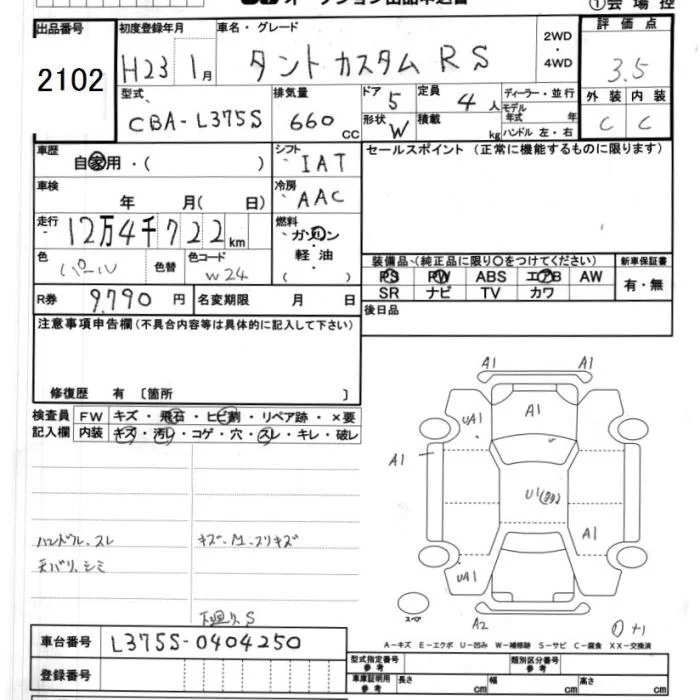 オークション出品申込書
①会場控
出品番号
2102
初度登録年月
H23 1月
車名・グレード
タント カスタム RS
2WD
・
4WD
評価点
3.5
外装 内装
C C
型式
CBA-L375S
排気量
660 CC
ドア 5
形状 W
定員 4 人
積載 kg
ディーラー・並行
モデル年式 年
ハンドル 左・右
車歴
自家用・( )
シフト
IAT
セールスポイント (正常に機能するものに限ります)
車検
年 月( 日)
冷房
AAC
走行
12万4千722km
燃料
ガソリン
・
軽油
( )
色
パール
色替
色コード
W24
装備品(純正品に限り○をつけてください)
新車保証書
PS PW ABS エアB AW
SR ナビ TV カワ
有・無
R券 9.790円
名変期限 月 日
後日品
注意事項申告欄(不具合内容等は具体的に記入して下さい)
修復歴 有 〔箇所 〕
検査員
記入欄
FW キズ・飛石・ヒビ割・リペア跡・×要
内装 キズ・汚レ・コゲ・穴・スレ・キレ・破レ
ハンドル、スレ
天バリ、シミ
A1 A1
UA1 A1
A1
A1
UA1
A2
スペア
A－キズ E－エクボ U－凹み W－補修跡 S－サビ C－腐食 XX－交換済
車台番号 L375S-0404250
登録番号
型式指定番号
参考
類別区分番号
参考
車庫証明用
参考
長さ cm 幅 cm 高さ cm